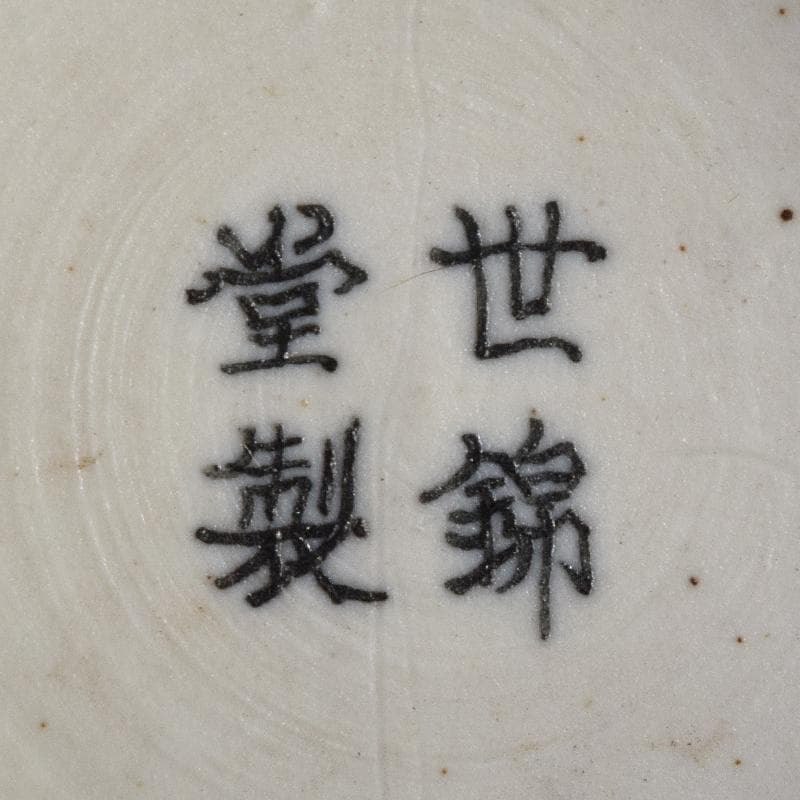 世錦
堂製